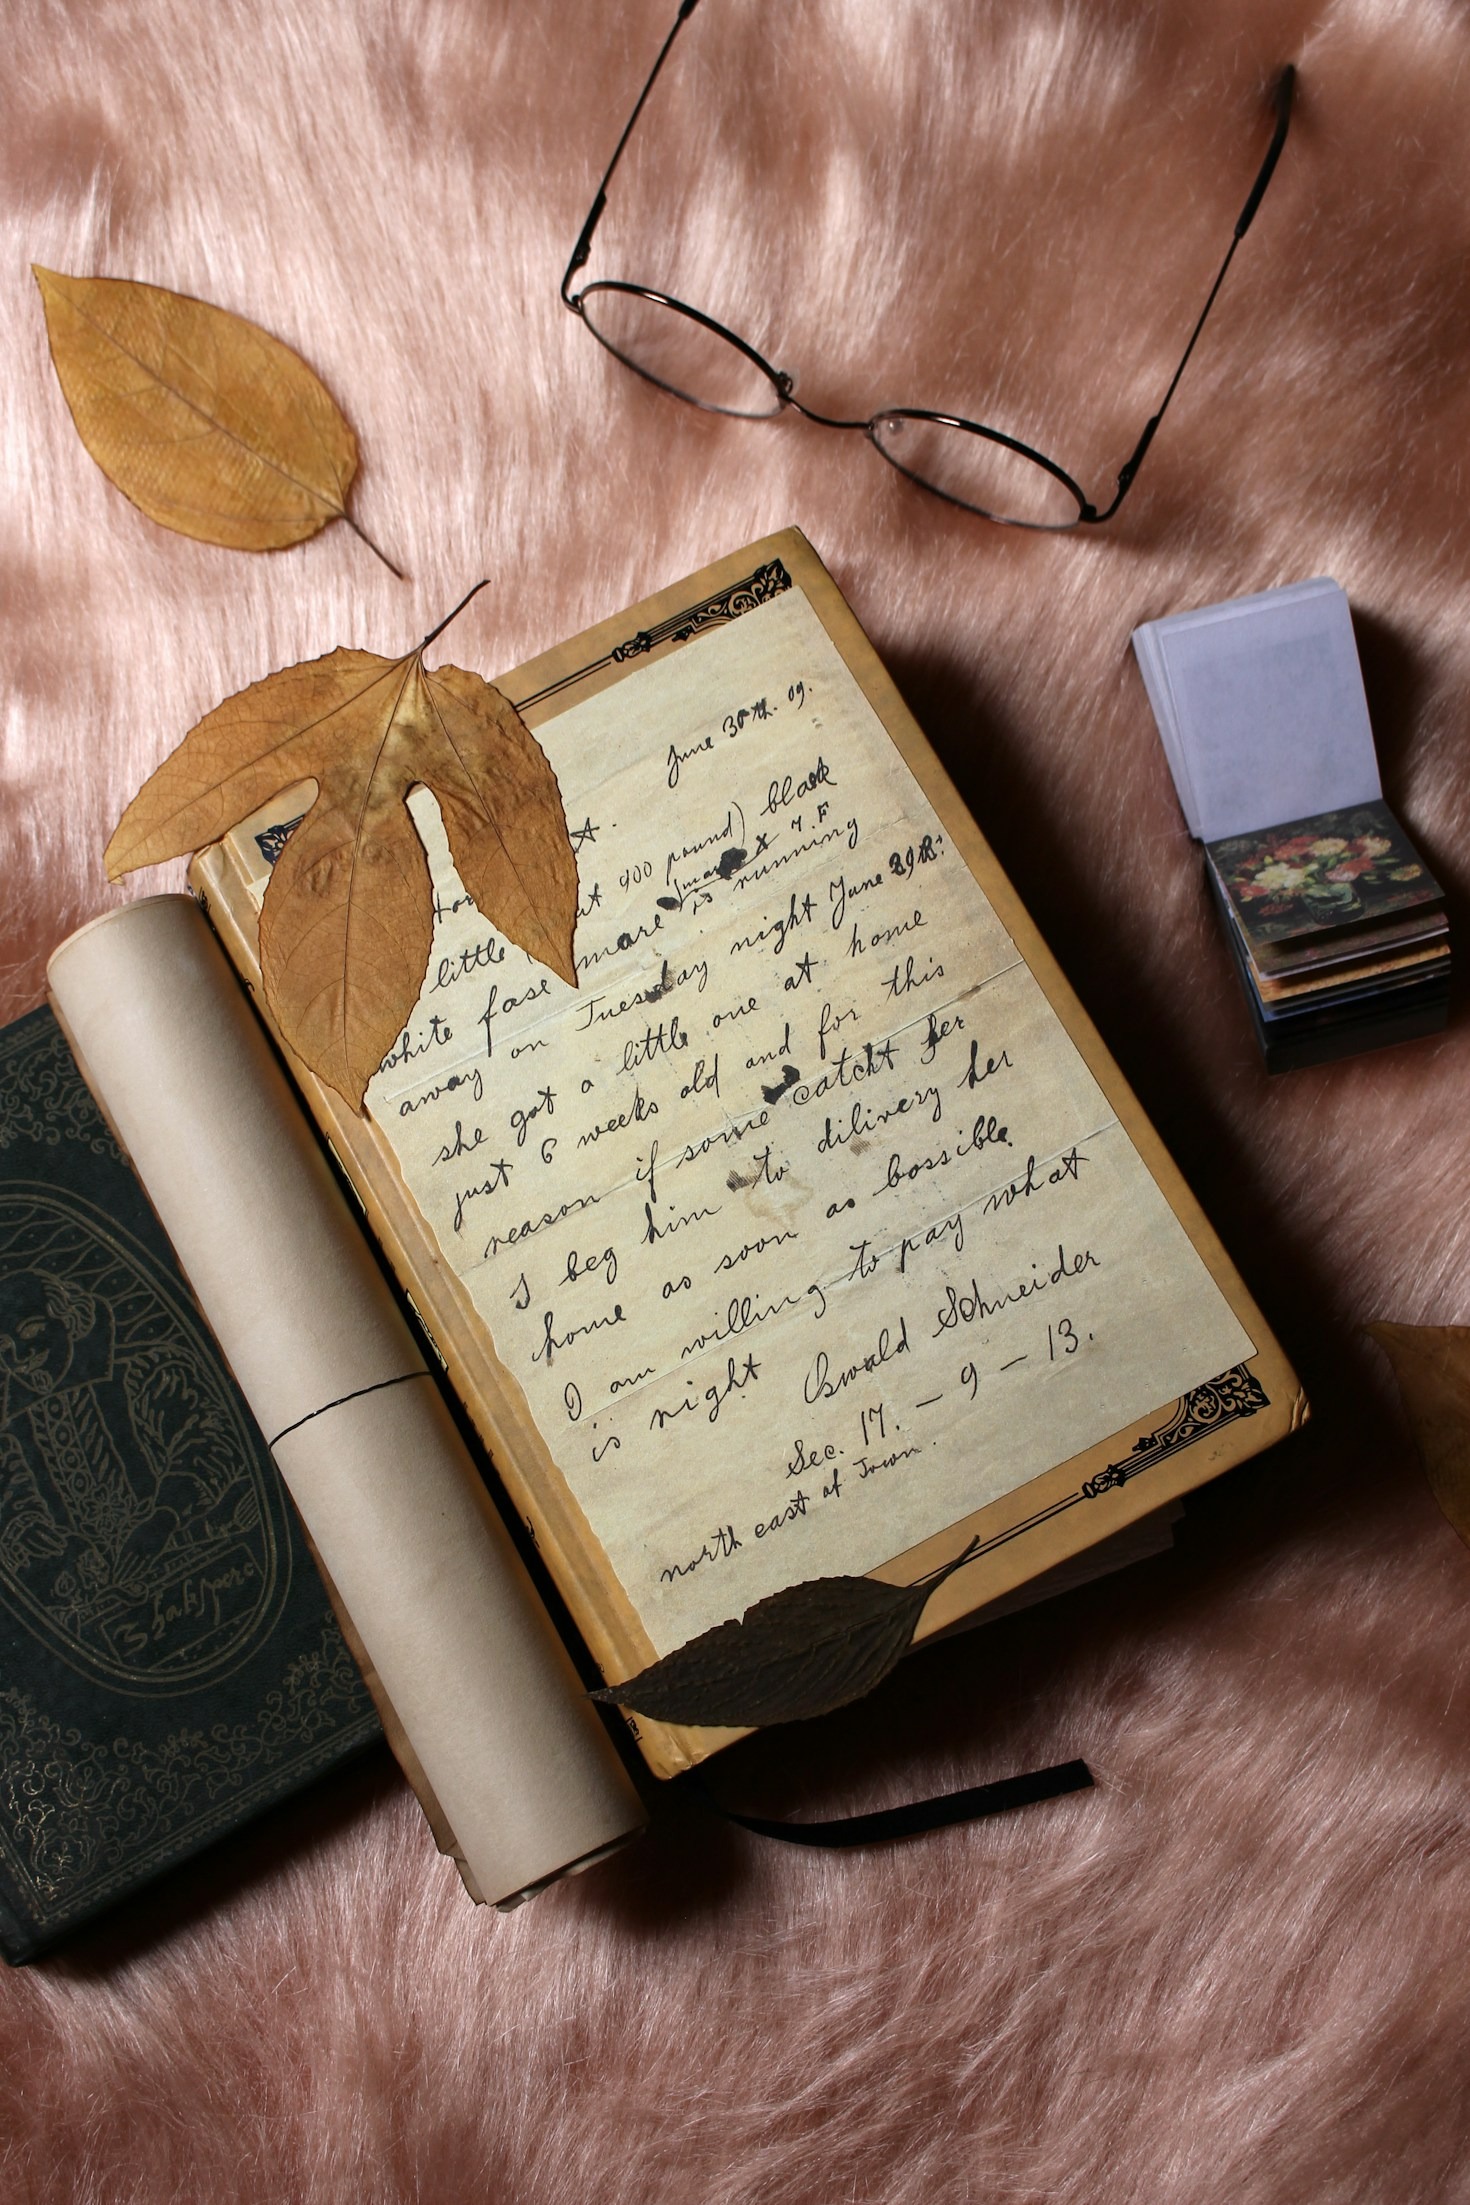 June 30th. 09.
900 pound) black
little
white fase mare is running
away on Tuesday night June 29th.
she got a little one at home
just 6 weeks old and for this
reason if some catcht her
I beg him to dilivery her
home as soon as bossible.
I am willing to pay what
is right Oswald Schneider
Sec. 17. - 9 - 13.
north east of Town.